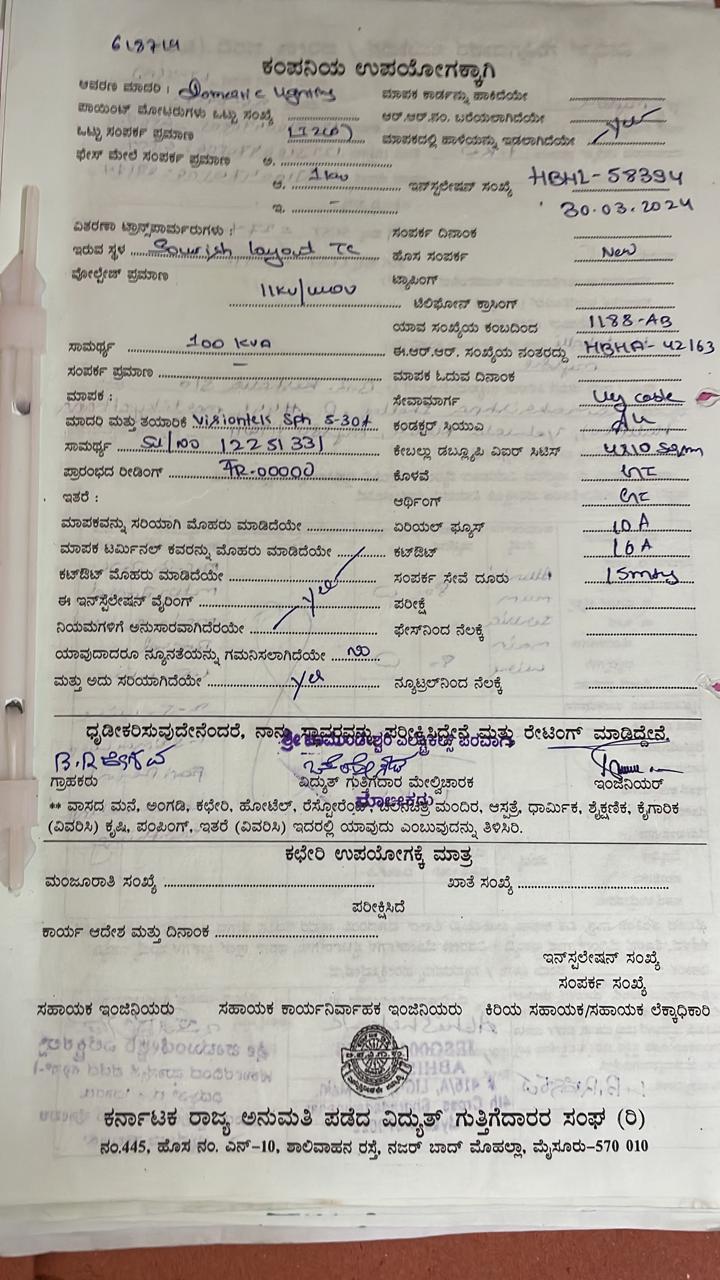 618714
ಕಂಪನಿಯ ಉಪಯೋಗಕ್ಕಾಗಿ
ಆವರಣ ಮಾದರಿ : Domestic Lighting ಮಾಪಕ ಕಾರ್ಡನ್ನು ಹಾಕಿದೆಯೇ ....................
ಪಾಯಿಂಟ್ ಮೋಟರುಗಳು ಒಟ್ಟು ಸಂಖ್ಯೆ .................... ಆರ್.ಆರ್.ನಂ. ಬರೆಯಲಾಗಿದೆಯೇ ....................
ಒಟ್ಟು ಸಂಪರ್ಕ ಪ್ರಮಾಣ ಮಾಪಕದಲ್ಲಿ ಹಾಳೆಯನ್ನು ಇಡಲಾಗಿದೆಯೇ yes
ಫೇಸ್ ಮೇಲೆ ಸಂಪರ್ಕ ಪ್ರಮಾಣ ಅ. ....................
ಆ. 1kw ಇನ್‌ಸ್ಟಲೇಷನ್ ಸಂಖ್ಯೆ HBHL-58394
ಇ. – 30.03.2024
ವಿತರಣಾ ಟ್ರಾನ್ಸ್‌ಪಾರ್ಮರುಗಳು : ಸಂಪರ್ಕ ದಿನಾಂಕ ....................
ಇರುವ ಸ್ಥಳ layout TC ಹೊಸ ಸಂಪರ್ಕ New
ವೋಲ್ಟೇಜ್ ಪ್ರಮಾಣ ಟ್ಯಾಪಿಂಗ್ ....................
11KV/ ಟೆಲಿಫೋನ್ ಕ್ರಾಸಿಂಗ್ ....................
ಯಾವ ಸಂಖ್ಯೆಯ ಕಂಬದಿಂದ 1188-AB
ಸಾಮರ್ಥ್ಯ 100 KVA ಈ.ಆರ್.ಆರ್. ಸಂಖ್ಯೆಯ ನಂತರದ್ದು HBHA-42163
ಸಂಪರ್ಕ ಪ್ರಮಾಣ – ಮಾಪಕ ಓದುವ ದಿನಾಂಕ ....................
ಮಾಪಕ : ಸೇವಾಮಾರ್ಗ Ug cable
ಮಾದರಿ ಮತ್ತು ತಯಾರಿಕೆ Visiontek Sph 5-30A ಕಂಡಕ್ಟರ್ ಸಿಯುವಿ
ಸಾಮರ್ಥ್ಯ Sl/no 12251331 ಕೇಬಲ್ಲು ಡಬ್ಲ್ಯೂಪಿ ವಿಐರ್ ಸಿಟಿಸ್
ಪ್ರಾರಂಭದ ರೀಡಿಂಗ್ IR-00000 ಕೊಳವೆ
ಇತರೆ : ಆರ್ಥಿಂಗ್
ಮಾಪಕವನ್ನು ಸರಿಯಾಗಿ ಮೊಹರು ಮಾಡಿದೆಯೇ .................... ಏರಿಯಲ್ ಫ್ಯೂಸ್ 10A
ಮಾಪಕ ಟರ್ಮಿನಲ್ ಕವರನ್ನು ಮೊಹರು ಮಾಡಿದೆಯೇ .................... ಕಟ್‌ಔಟ್ 16A
ಕಟ್‌ಔಟ್ ಮೊಹರು ಮಾಡಿದೆಯೇ .................... ಸಂಪರ್ಕ ಸೇವೆ ದೂರು
ಈ ಇನ್‌ಸ್ಟಲೇಷನ್ ವೈರಿಂಗ್ yes ಪರೀಕ್ಷೆ ....................
ನಿಯಮಗಳಿಗೆ ಅನುಸಾರವಾಗಿದೆರಯೇ .................... ಫೇಸ್‌ನಿಂದ ನೆಲಕ್ಕೆ ....................
ಯಾವುದಾದರೂ ನ್ಯೂನತೆಯನ್ನು ಗಮನಿಸಲಾಗಿದೆಯೇ no
ಮತ್ತು ಅದು ಸರಿಯಾಗಿದೆಯೇ yes ನ್ಯೂಟ್ರಲ್‌ನಿಂದ ನೆಲಕ್ಕೆ ....................
ಧೃಡೀಕರಿಸುವುದೇನೆಂದರೆ, ನಾನು ಸ್ಥಾವರವನ್ನು ಪರೀಕ್ಷಿಸಿದ್ದೇನೆ ಮತ್ತು ರೇಟಿಂಗ್ ಮಾಡಿದ್ದೇನೆ.
ಗ್ರಾಹಕರು ವಿದ್ಯುತ್ ಗುತ್ತಿಗೆದಾರ ಮೇಲ್ವಿಚಾರಕ ಇಂಜಿನಿಯರ್
** ವಾಸದ ಮನೆ, ಅಂಗಡಿ, ಕಛೇರಿ, ಹೋಟೆಲ್, ರೆಸ್ಟೋರೆಂಟ್, ಚಲನಚಿತ್ರ ಮಂದಿರ, ಆಸ್ಪತ್ರೆ, ಧಾರ್ಮಿಕ, ಶೈಕ್ಷಣಿಕ, ಕೈಗಾರಿಕ
(ವಿವರಿಸಿ) ಕೃಷಿ, ಪಂಪಿಂಗ್, ಇತರೆ (ವಿವರಿಸಿ) ಇದರಲ್ಲಿ ಯಾವುದು ಎಂಬುವುದನ್ನು ತಿಳಿಸಿರಿ.
ಕಛೇರಿ ಉಪಯೋಗಕ್ಕೆ ಮಾತ್ರ
ಮಂಜೂರಾತಿ ಸಂಖ್ಯೆ .................... ಖಾತೆ ಸಂಖ್ಯೆ ....................
ಪರೀಕ್ಷಿಸಿದೆ
ಕಾರ್ಯ ಆದೇಶ ಮತ್ತು ದಿನಾಂಕ ....................
ಇನ್‌ಸ್ಪಲೇಷನ್ ಸಂಖ್ಯೆ
ಸಂಪರ್ಕ ಸಂಖ್ಯೆ
ಸಹಾಯಕ ಇಂಜಿನಿಯರು ಸಹಾಯಕ ಕಾರ್ಯನಿರ್ವಾಹಕ ಇಂಜಿನಿಯರು ಕಿರಿಯ ಸಹಾಯಕ/ಸಹಾಯಕ ಲೆಕ್ಕಾಧಿಕಾರಿ
ಕರ್ನಾಟಕ ರಾಜ್ಯ ಅನುಮತಿ ಪಡೆದ ವಿದ್ಯುತ್ ಗುತ್ತಿಗೆದಾರರ ಸಂಘ (ರಿ)
ನಂ.445, ಹೊಸ ನಂ. ಎನ್-10, ಶಾಲಿವಾಹನ ರಸ್ತೆ, ನಜರ್ ಬಾದ್ ಮೊಹಲ್ಲಾ, ಮೈಸೂರು-570 010